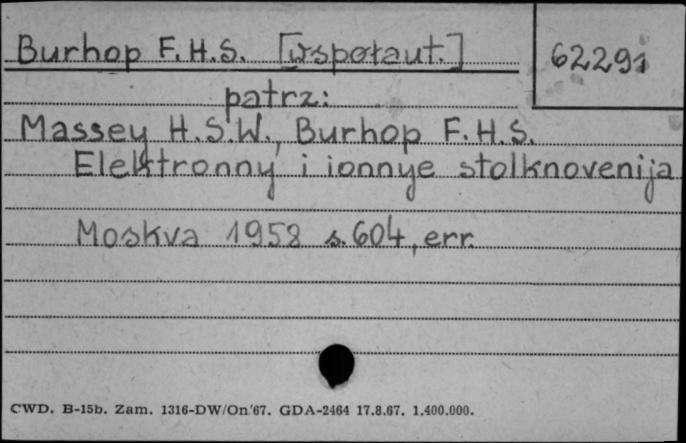 Burhop F.H.S. [współaut.]
62291
patrz:
Massey H.S.W., Burhop F.H.S.
Elektronny i ionnye stolknovenija
Moskva 1958 s. 604, err.
CWD. B-15b. Zam. 1316-DW/On/67. GDA-2464 17.8.67. 1.400.000.